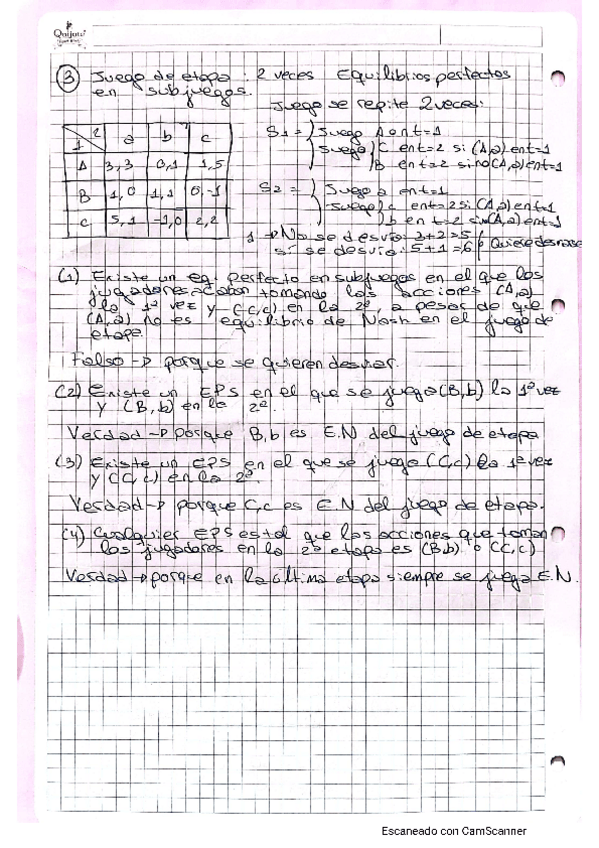 Quijote
3 Juego de etapa : 2 veces Equilibrios perfectos
en subjuegos.
Juego se repite 2 veces:
1 2 a b c
A 3,3 0,1 1,5
B 1,0 1,1 0,-1
C 5,1 -1,0 2,2
S1 = Juego A en t=1
Juego C en t=2 si (A,a) en t=1
B en t=2 si no (A,a) en t=1
S2 = Juega a en t=1
Juego c en t=2 si (A,a) en t=1
b en t=2 si no (A,a) en t=1
1 → No se desvía: 3+2=5
si se desvía: 5+1=6 Quiere desviarse
(1) Existe un eq. perfecto en subjuegos en el que los
jugadores acaban tomando las acciones (A,a)
la 1º vez y (C,c) en la 2º, a pesar de que
(A,a) no es equilibrio de Nash en el juego de
etapa.
Falso → porque se quieren desviar.
(2) Existe un EPS en el que se juega (B,b) la 1º vez
y (B,b) en la 2º.
Verdad → porque B,b es E.N del juego de etapa
(3) Existe un EPS en el que se juego (C,c) la 1º vez
y (C,c) en la 2º.
Verdad → porque C,c es E.N del juego de etapa.
(4) Cualquier EPS es tal que las acciones que toman
los jugadores en la 2º etapa es (B,b) o (C,c)
Verdad → porque en la última etapa siempre se juega E.N.
Escaneado con CamScanner